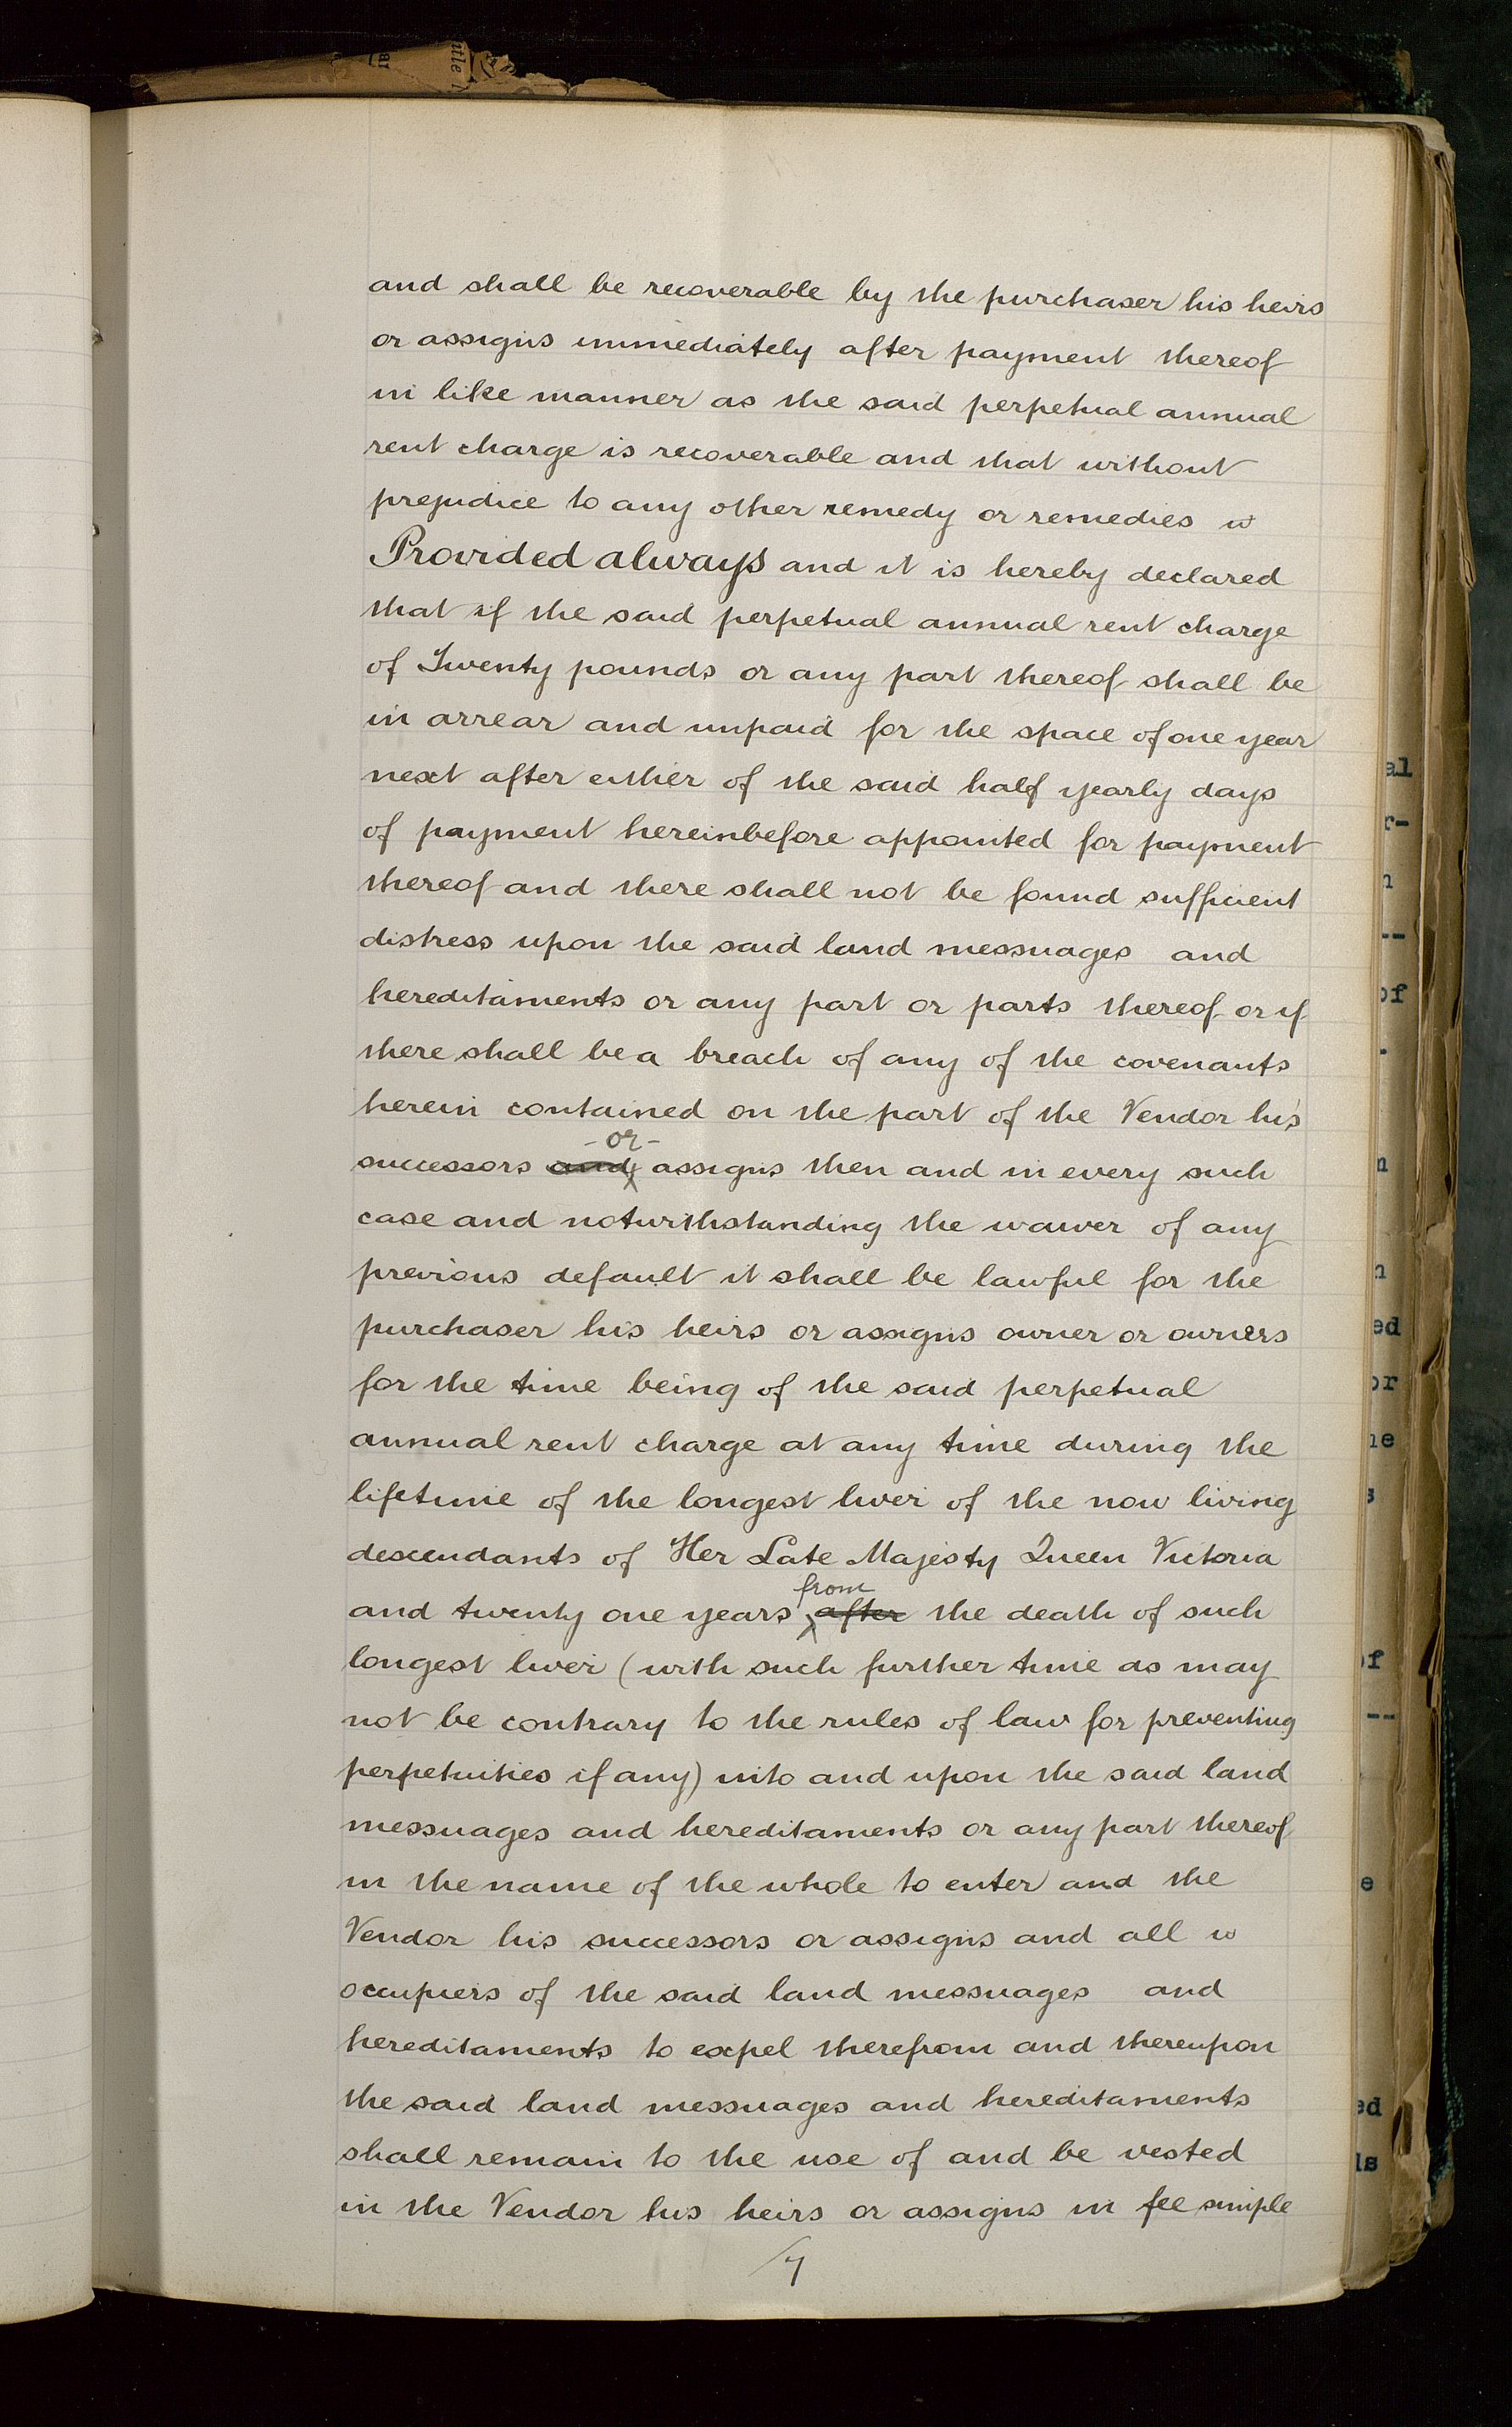 and shall be recoverable by the purchaser his heirs
or assigns immediately after payment thereof
in like manner as the said perpetual annual
rent charge is recoverable and that without
prejudice to any other remedy or remedies
Provided always and it is hereby declared
that if the said perpetual annual rent charge
of Twenty pounds or any part thereof shall be
in arrear and unpaid for the space of one year
next after either of the said half yearly days
of payment hereinbefore appointed for payment
thereof and there shall not be found sufficient
distress upon the said land messuages and
hereditaments or any part or parts thereof or if
there shall be a breach of any of the covenants
herein contained on the part of the Vendor his
-or-
successors and assigns then and in every such
case and notwithstanding the waiver of any
previous default it shall be lawful for the
purchaser his heirs or assigns owner or owners
for the time being of the said perpetual
annual rent charge at any time during the
lifetime of the longest liver of the now living
descendants of Her Late Majesty Queen Victoria
from
and twenty one years after the death of such
longest liver (with such further time as may
not be contrary to the rules of law for preventing
perpetuities if any) into and upon the said land
messuages and hereditaments or any part thereof
in the name of the whole to enter and the
Vendor his successors or assigns and all
occupiers of the said land messuages and
hereditaments to expel therefrom and thereupon
the said land messuages and hereditaments
shall remain to the use of and be vested
in the Vendor his heirs or assigns in fee simple
/7